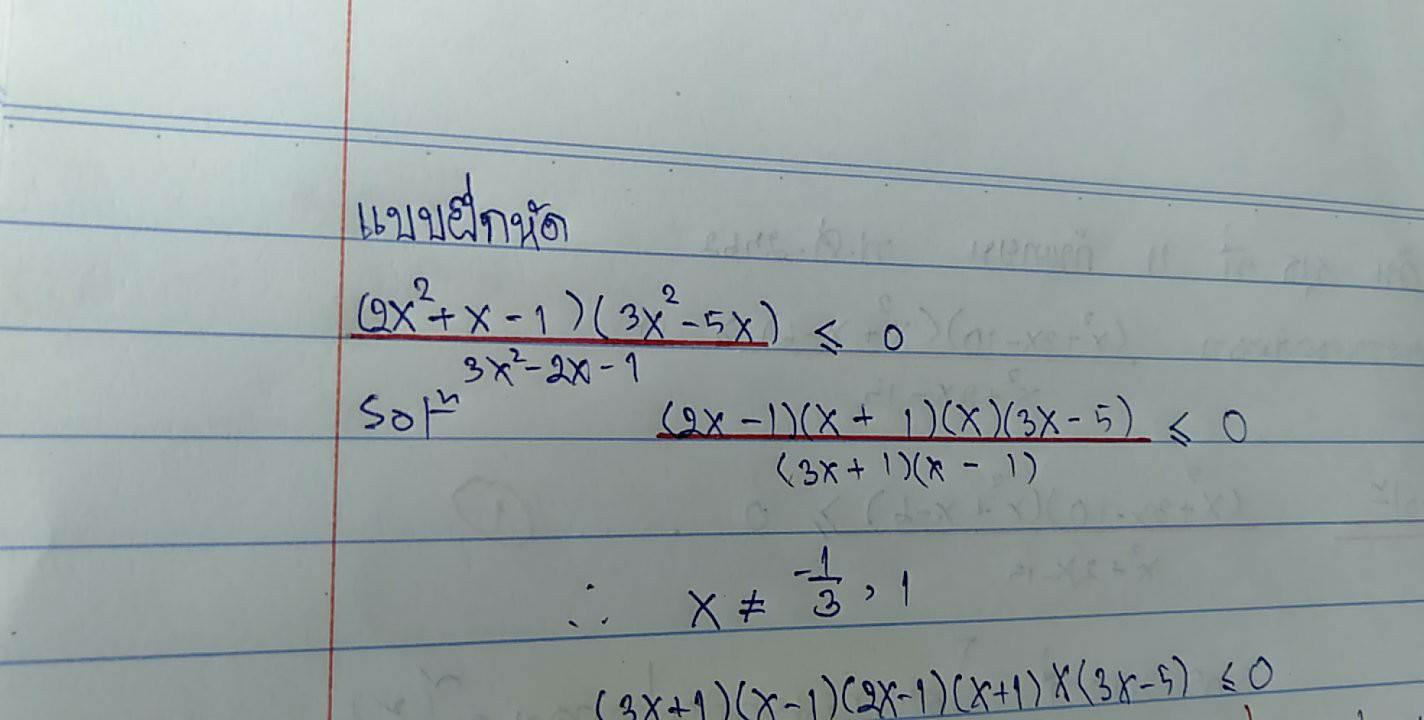 แบบฝึกหัด
(2x²+x-1)(3x²-5x) ≤ 0
3x²-2x-1
Solⁿ (2x-1)(x+1)(x)(3x-5) ≤ 0
(3x+1)(x-1)
∴ x ≠ -1/3, 1
(3x+1)(x-1)(2x-1)(x+1)x(3x-5) ≤ 0